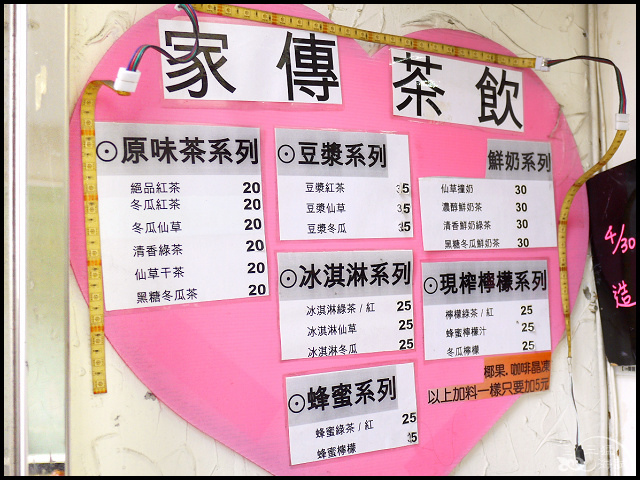 家傳
茶飲
⊙原味茶系列
絕品紅茶 20
冬瓜紅茶 20
冬瓜仙草 20
清香綠茶 20
仙草干茶 20
黑糖冬瓜茶 20
⊙豆漿系列
豆漿紅茶 35
豆漿仙草 35
豆漿冬瓜 35
鮮奶系列
仙草撞奶 30
濃醇鮮奶茶 30
清香鮮奶綠茶 30
黑糖冬瓜鮮奶茶 30
⊙冰淇淋系列
冰淇淋綠茶/紅 25
冰淇淋仙草 25
冰淇淋冬瓜 25
⊙現榨檸檬系列
檸檬綠茶/紅 25
蜂蜜檸檬汁 25
冬瓜檸檬 25
⊙蜂蜜系列
蜂蜜綠茶/紅 25
蜂蜜檸檬
椰果.咖啡晶凍
以上加料一樣只要加5元
4/30
造